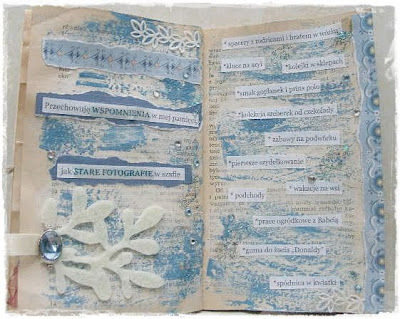 Przechowuję WSPOMNIENIA w mej pamięci,
jak STARE FOTOGRAFIE w szafie
*spacery z rodzicami i bratem w wózku
*klucz na szyi
*kolejki w sklepach
*smak goplanek i prins polo
*kolekcja sreberek od czekolady
*zabawy na podwórku
*pierwsze szydełkowanie
*wakacje na wsi
*podchody
*prace ogródkowe z Babcią
*guma do żucia „Donaldy"
*spódnica w kwiatki